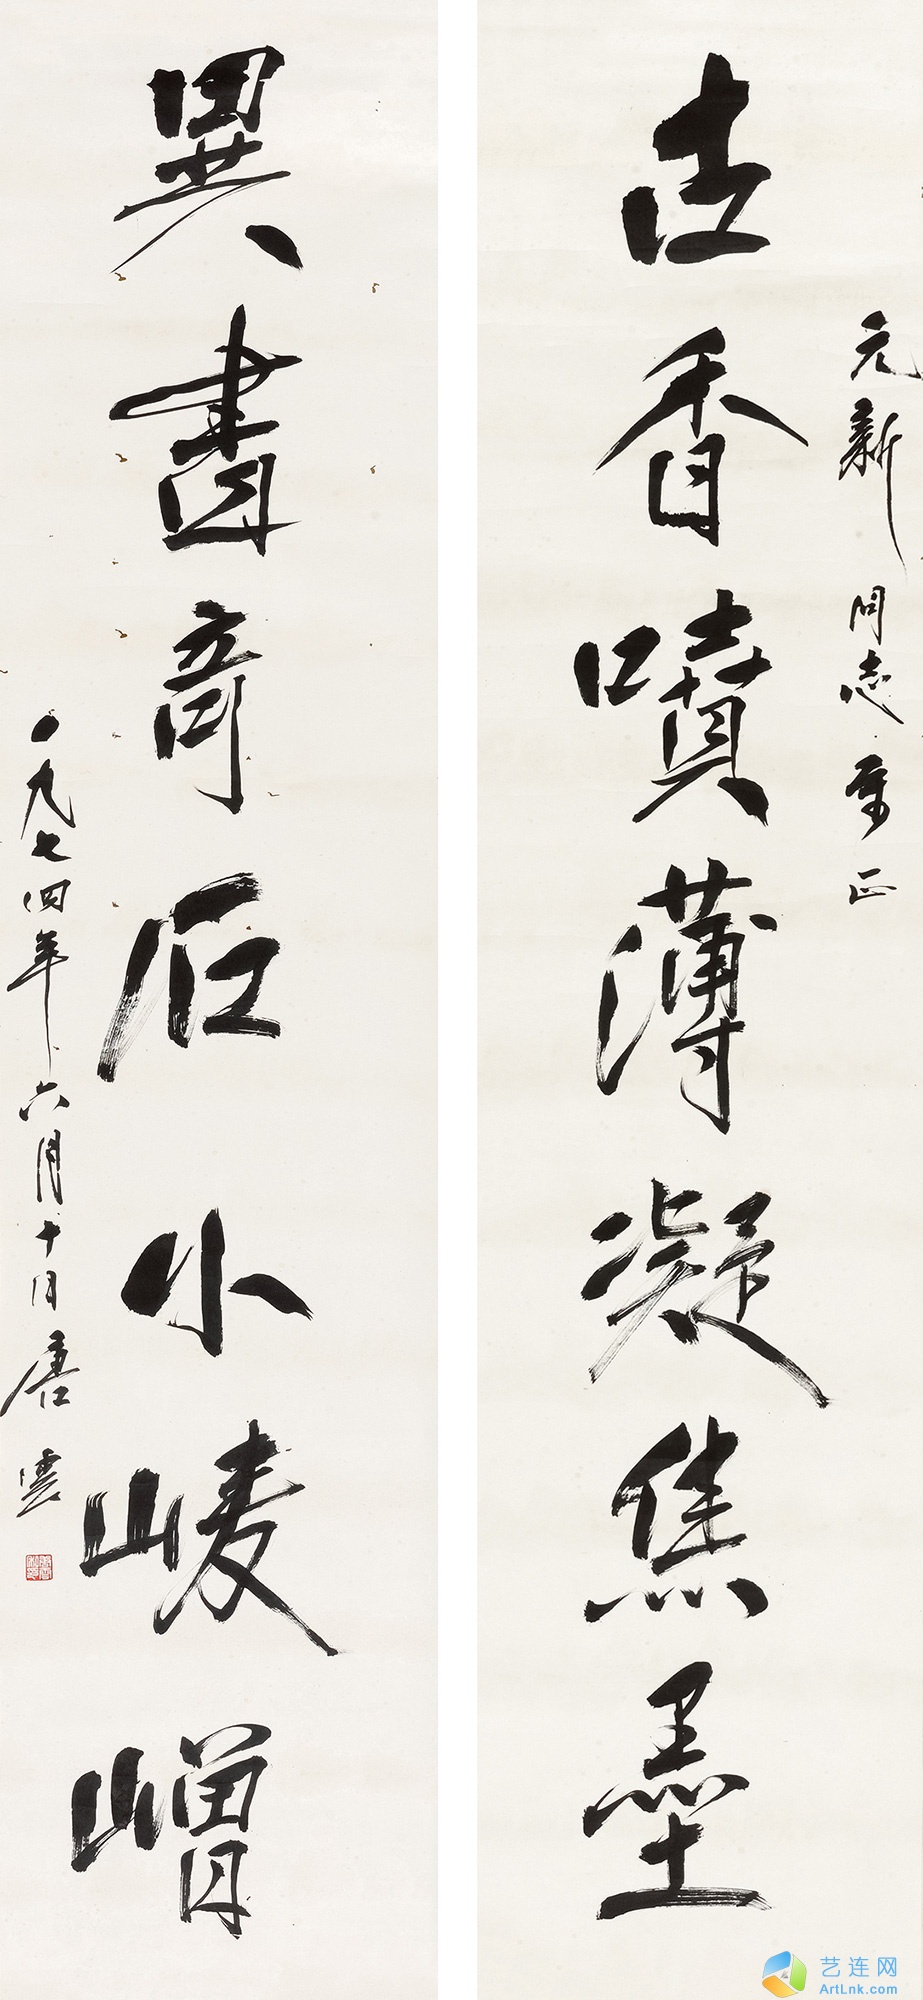 元新同志正
古香噴薄凝焦墨
異書奇石小崚嶒
一九七四年六月十日唐雲
艺连网
ArtLnk.com